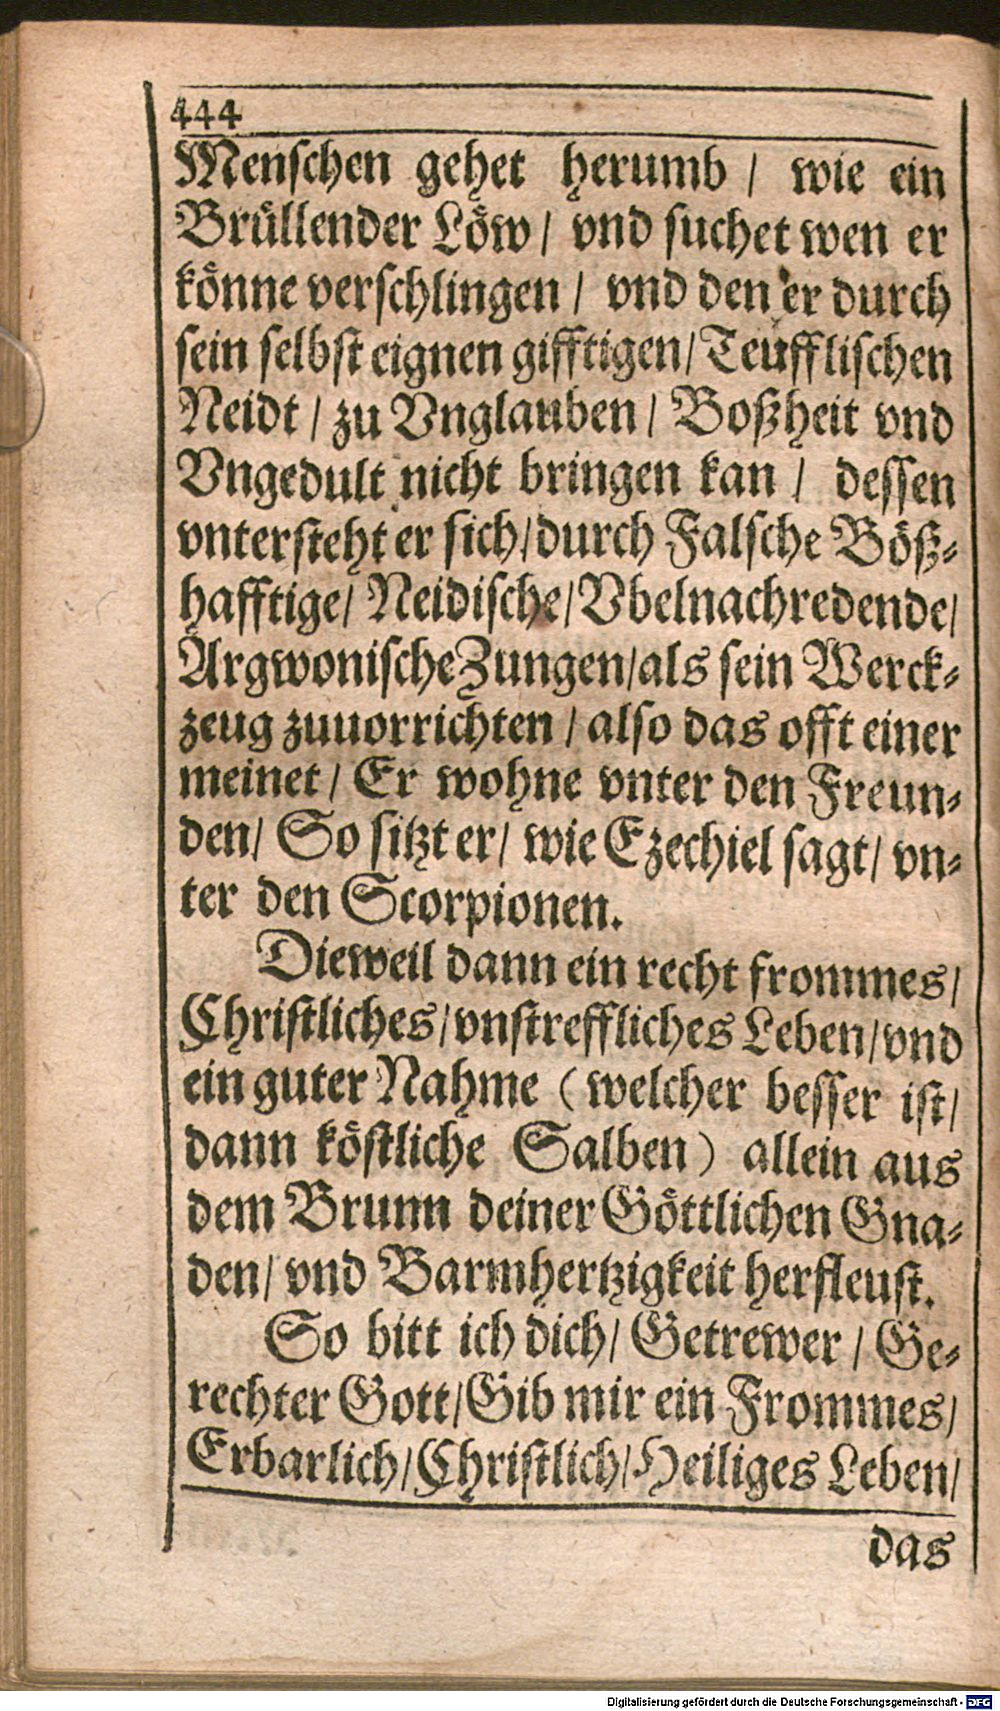 444
Menschen gehet herumb / wie ein
Brüllender Löw / vnd suchet wen er
könne verschlingen / vnd den er durch
sein selbst eignen gifftigen/ Teufflischen
Neidt / zu Vnglauben / Boßheit vnd
Vngedult nicht bringen kan / dessen
vntersteht er sich/durch Falsche Böß-
hafftige/ Neidische/ Vbelnachredende/
Argwonische Zungen/als sein Werck-
zeug zuuorrichten / also das offt einer
meinet / Er wohne vnter den Freun-
den/ So sitzt er/ wie Ezechiel sagt/ vn-
ter den Scorpionen.
Dieweil dann ein recht frommes/
Christliches/vnstreffliches Leben/vnd
ein guter Nahme (welcher besser ist/
dann köstliche Salben) allein aus
dem Brunn deiner Göttlichen Gna-
den/ vnd Barmhertzigkeit herfleust.
So bitt ich dich/ Getrewer / Ge-
rechter Gott/Gib mir ein Frommes/
Erbarlich/Christlich/Heiliges Leben/
das
Digitalisierung gefördert durch die Deutsche Forschungsgemeinschaft - DFG